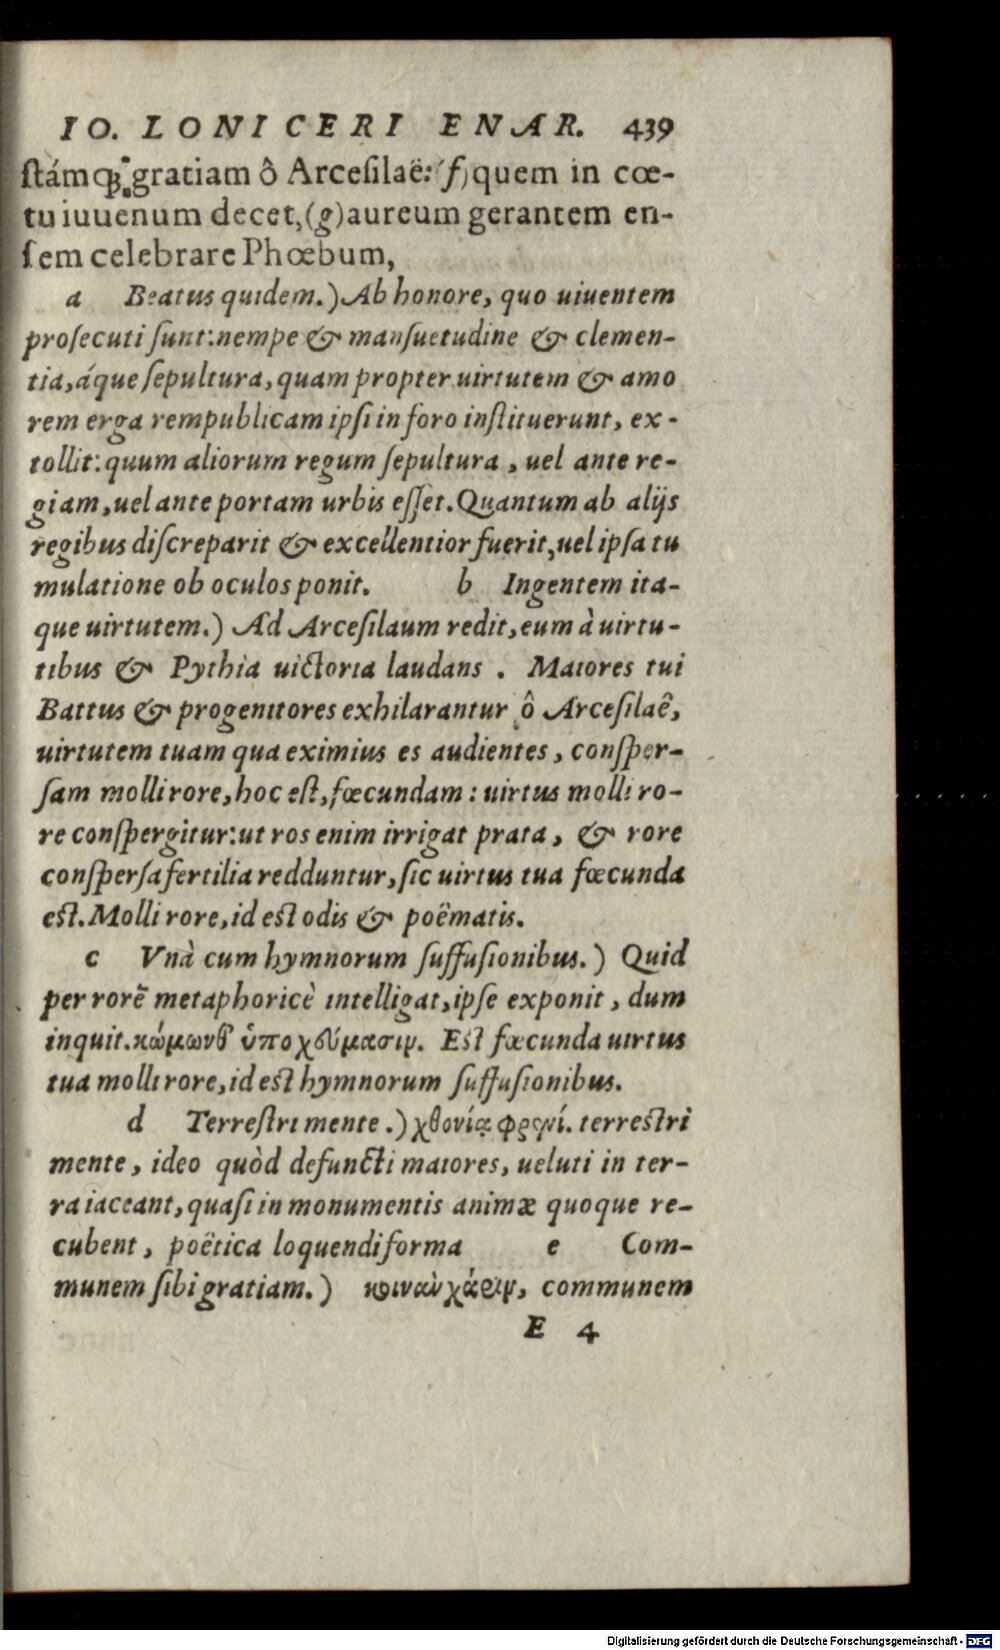 IO. LONICERI ENAR. 439
ſtámq́; gratiam ô Arceſilaë: (f) quem in cœ-
tu iuuenum decet, (g) aureum gerantem en-
ſem celebrare Phœbum,
a Beatus quidem.) Ab honore, quo uiuentem
proſecuti ſunt: nempe & manſuetudine & clemen-
tia, áque ſepultura, quam propter uirtutem & amo
rem erga rempublicam ipſi in foro inſtituerunt, ex-
tollit: quum aliorum regum ſepultura, uel ante re-
giam, uel ante portam urbis eſſet. Quantum ab alijs
regibus diſcreparit & excellentior fuerit, uel ipſa tu
mulatione ob oculos ponit. b Ingentem ita-
que uirtutem.) Ad Arceſilaum redit, eum à uirtu-
tibus & Pythia uictoria laudans. Maiores tui
Battus & progenitores exhilarantur ô Arceſilaê,
uirtutem tuam qua eximius es audientes, conſper-
ſam molli rore, hoc eſt, fœcundam: uirtus molli ro-
re conſpergitur: ut ros enim irrigat prata, & rore
conſperſa fertilia redduntur, ſic uirtus tua fœcunda
eſt. Molli rore, id eſt odis & poëmatis.
c Vnà cum hymnorum ſuffuſionibus.) Quid
per rorẽ metaphoricè intelligat, ipſe exponit, dum
inquit. κώμων θ' ὑπο χεύμασιν. Eſt fœcunda uirtus
tua molli rore, id eſt hymnorum ſuffuſionibus.
d Terreſtri mente.) χθονίᾳ φρενί. terreſtri
mente, ideo quòd defuncti maiores, ueluti in ter-
ra iaceant, quaſi in monumentis animæ quoque re-
cubent, poëtica loquendi forma e Com-
munem ſibi gratiam.) κοινὰν χάριν, communem
E 4
Digitalisierung gefördert durch die Deutsche Forschungsgemeinschaft - DFG